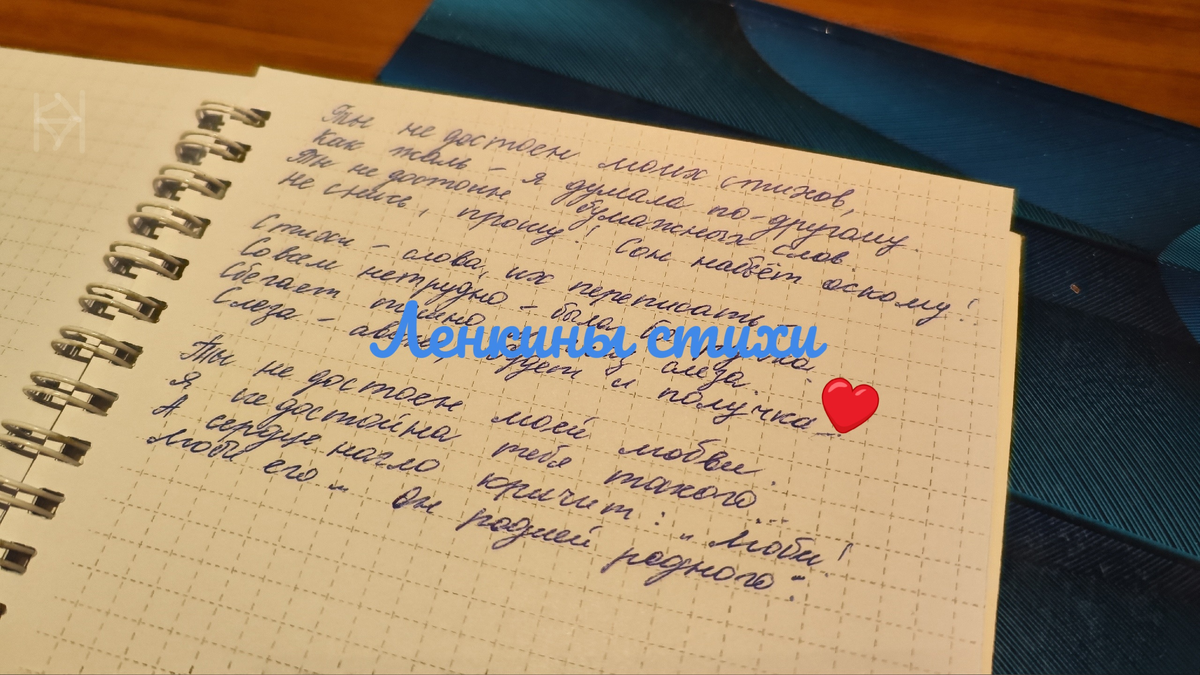 Ты не достоен моих стихов,
Как жаль – я думала по-другому
Ты не достоин бумажных слов.
Не снись, прошу! Сон набьёт оскому!
Стихи – слова, их переписать –
Совсем нетрудно – была б
Сбегает слеза.
Слеза – будет и получка –
Ты не достоен моей любви.
Я не достойна тебя такого...
А сердце нагло кричит: "Люби!
Люби его – он родней родного".
Ленкины стихи